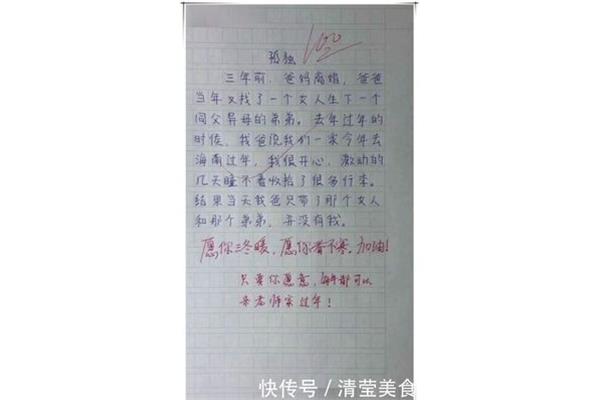 孤独
100
三年前，爸妈离婚，爸爸
当年又找了一个女人生下一个
同父异母的弟弟。去年过年的
时候，我爸说我们一家今年去
海南过年，我很开心，激动的
几天睡不着收拾了很多行李。
结果当天我爸只带了那个女人
和那个弟弟，并没有我。
愿你三冬暖，愿你春不寒。加油！
只要你愿意，每年都可以
来老师家过年！
快传号/清莹美食